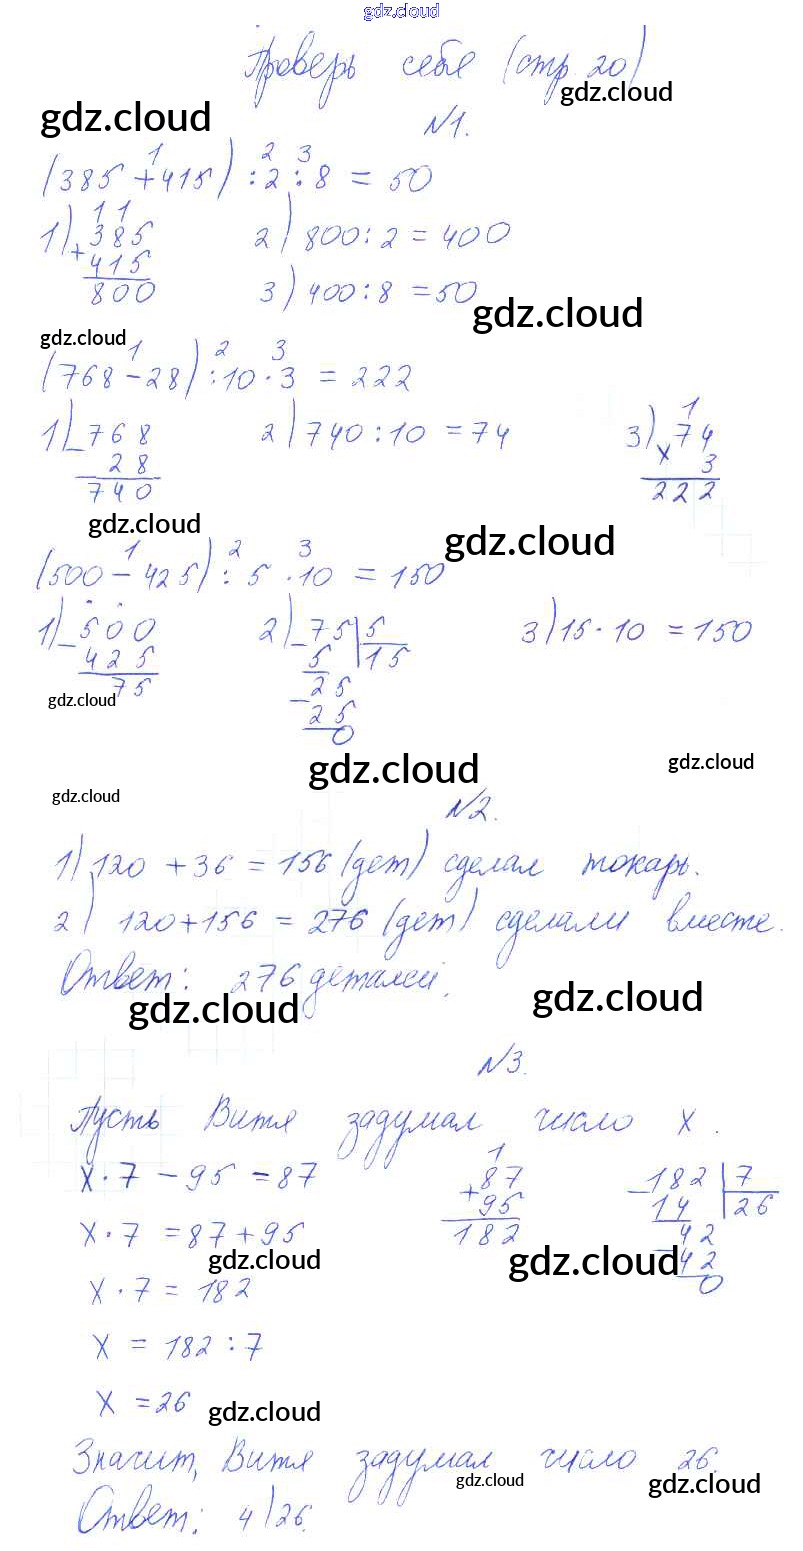 gdz.cloud
Проверь себе (стр. 20)
gdz.cloud
gdz.cloud
№1.
1 2 3
(385 + 415) : 2 : 8 = 50
1 1
1) 385 2) 800 : 2 = 400
+ 415
800 3) 400 : 8 = 50
gdz.cloud
gdz.cloud
1 2 3
(768 - 28) : 10 · 3 = 222
1) _ 768 2) 740 : 10 = 74 3) 1 74
28 × 3
740 222
gdz.cloud
gdz.cloud
1 2 3
(500 - 425) : 5 · 10 = 150
1) _ 500 2) _ 75 | 5 3) 15 · 10 = 150
425 5 15
75 _ 25
gdz.cloud
25
0
gdz.cloud
gdz.cloud
gdz.cloud
№2.
1) 120 + 36 = 156 (дет) сделал токарь.
2) 120 + 156 = 276 (дет) сделали вместе.
Ответ: 276 деталей.
gdz.cloud
gdz.cloud
№3.
Пусть Витя задумал число х.
х · 7 - 95 = 87 1 + 87 _ 182 | 7
95 14 26
х · 7 = 87 + 95 182 _ 42
gdz.cloud
gdz.cloud
42
х · 7 = 182 0
х = 182 : 7
х = 26
gdz.cloud
Значит, Витя задумал число 26.
gdz.cloud
gdz.cloud
Ответ: 4) 26.